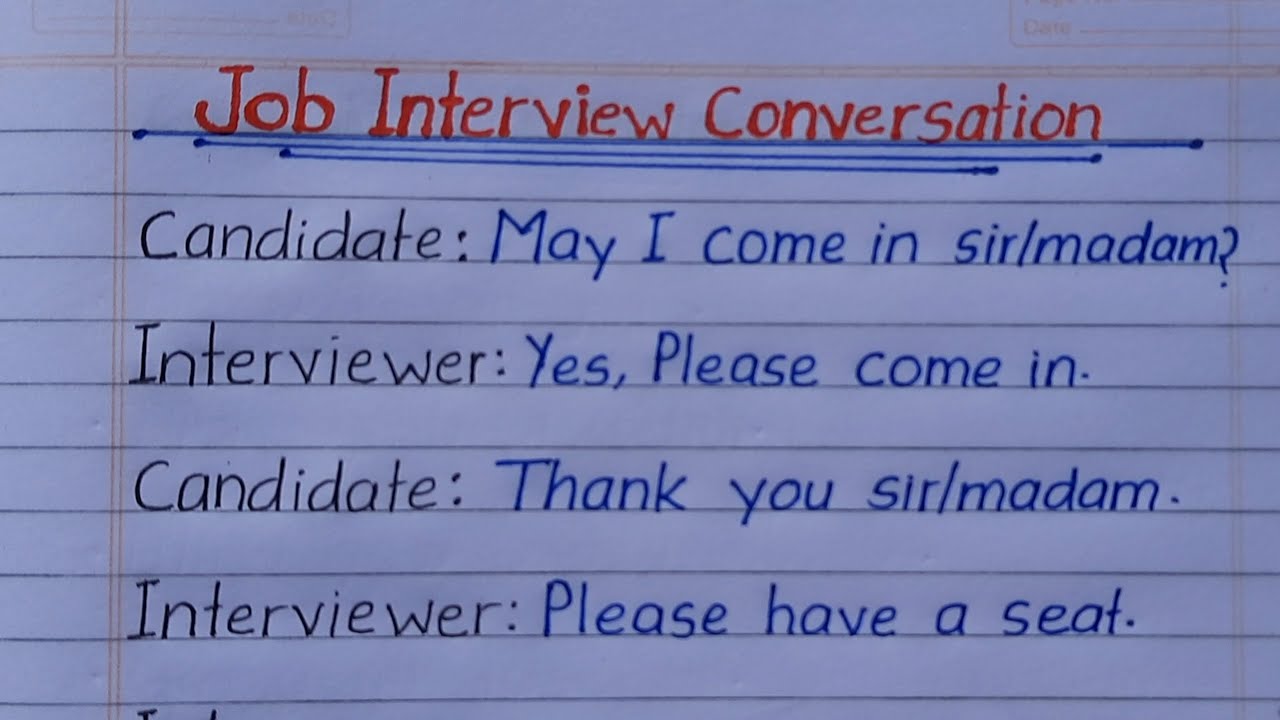 Date
Job Interview Conversation
Candidate: May I come in sir/madam?
Interviewer: Yes, Please come in.
Candidate: Thank you sir/madam.
Interviewer: Please have a seat.